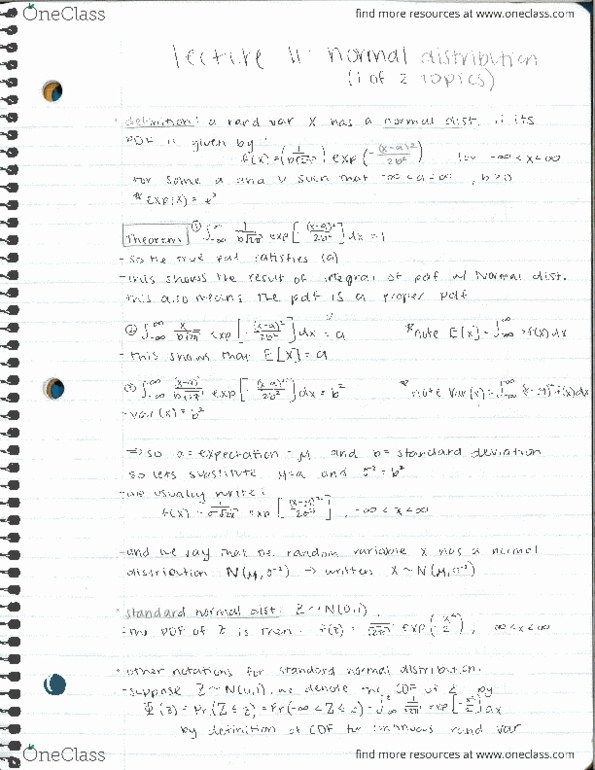 OneClass
find more resources at www.oneclass.com
lecture 11: normal distribution
(1 of 2 topics)
definition: a rand var X has a normal dist. if its
PDF is given by:
f(x) = (1/(b√2π)) exp(-(x-a)²/2b²) for -∞<x<∞
for some a and b such that -∞<a<∞, b>0
* exp(x) = eˣ
Theorem ① ∫_{-∞}^{∞} 1/(b√2π) exp[-(x-a)²/2b²] dx = 1
- so the true pdf satisfies (a)
- this shows the result of integral of pdf w/ Normal dist.
this also means the pdf is a proper pdf
② ∫_{-∞}^{∞} x/(b√2π) exp[-(x-a)²/2b²] dx = a *note E[X] = ∫_{-∞}^{∞} x f(x) dx
- this shows that E[X] = a
③ ∫_{-∞}^{∞} (x-a)²/(b√2π) exp[-(x-a)²/2b²] dx = b² * note Var(x) = ∫_{-∞}^{∞} (x-μ)² f(x) dx
- var(x) = b²
⇒ so a = expectation = μ and b = standard deviation
so lets substitute μ=a and σ²=b²
- we usually write:
f(x) = 1/(σ√2π) exp[-(x-μ)²/2σ²], -∞<x<∞
- and we say that the random variable X has a normal
distribution N(μ,σ²) → written X~N(μ,σ²)
standard normal dist: Z~N(0,1).
- the PDF of Z is then f(z) = 1/√2π exp( ), ∞<x<∞
• other notations for standard normal distribution.
- suppose Z~N(0,1), we denote the CDF of Z by
Φ(z) = Pr(Z≤z) = Pr(-∞<Z≤z) = ∫_{-∞}^{z} 1/√2π exp[-x²/2] dx
by definition of CDF for continuous rand var
OneClass
find more resources at www.oneclass.com